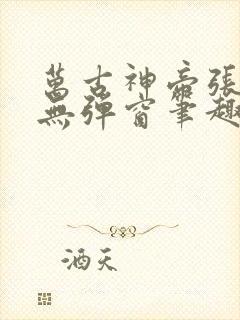 萬古神帝張
無彈窗筆趣
酒天